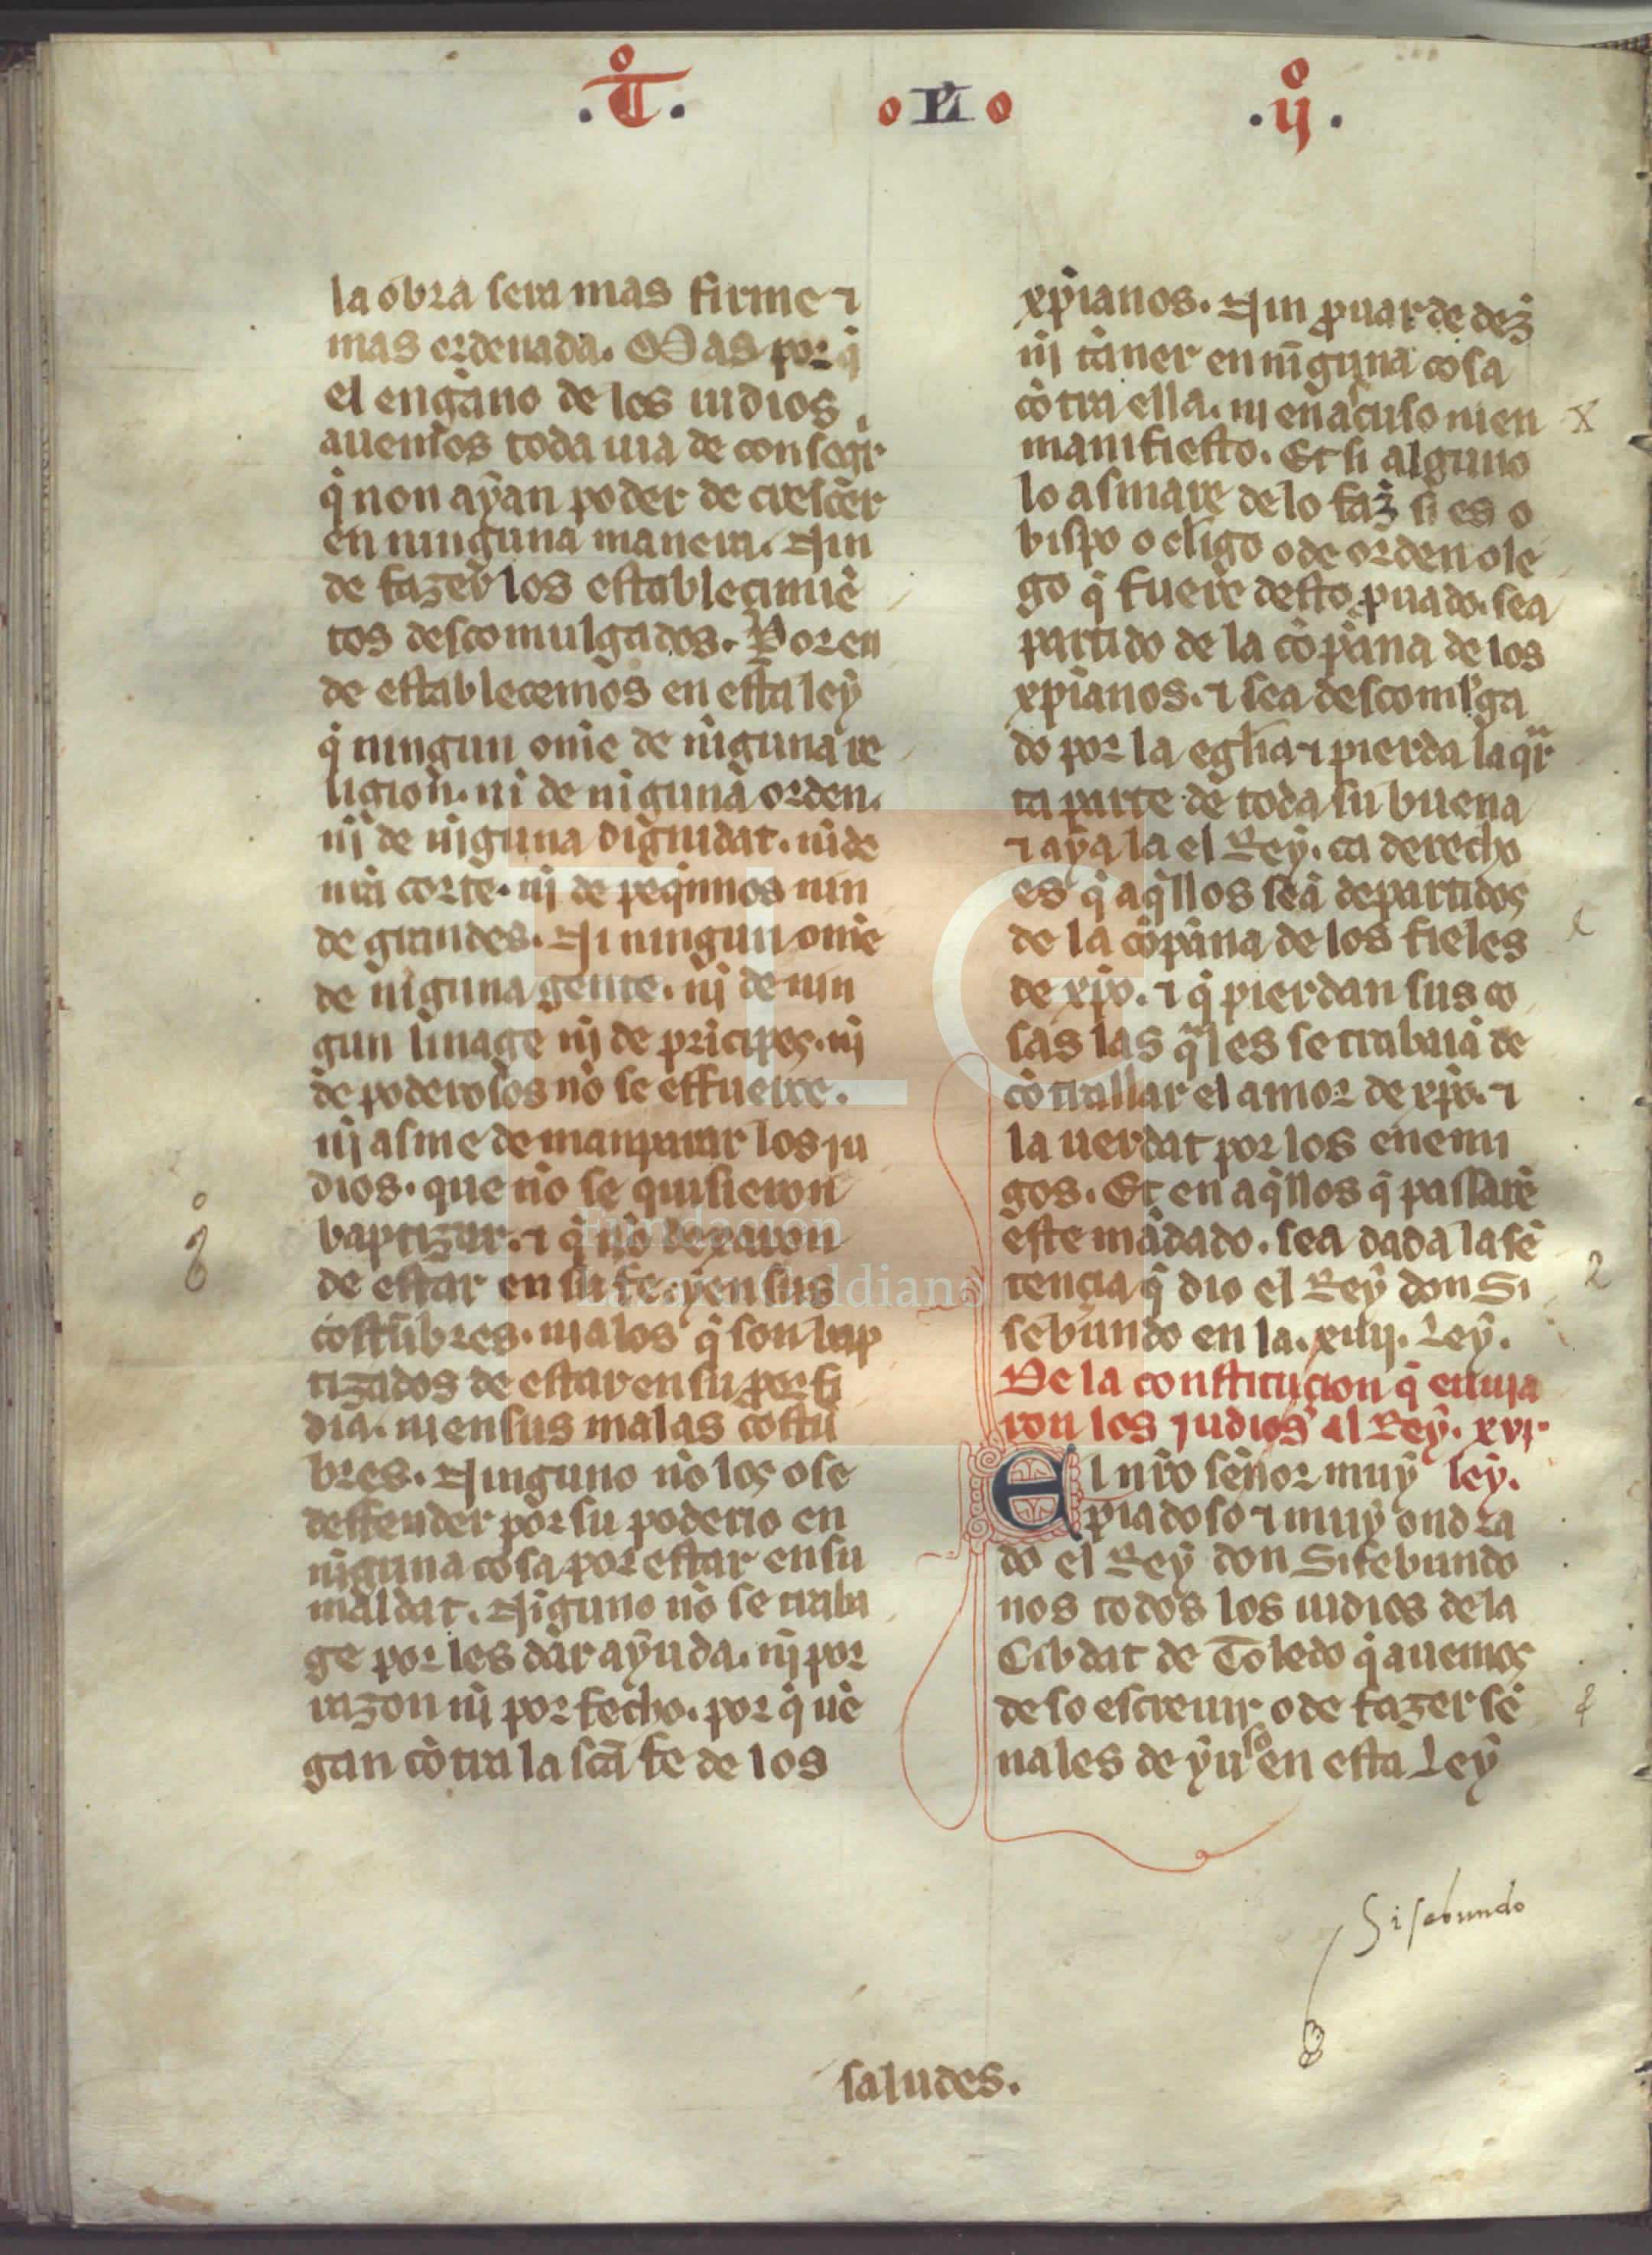 .T. o XII o .ij.
la obra sera mas firme ⁊
mas ordenada. Mas por q̇
el engãno de los iudios
auemos toda uia de conseg̃r
q̇ non aỹan poder de cresc̃er
en ninguna manera. Nin
de fazer los establecimiẽ
tos descomulgados. Por en
de establecemos en esta leỹ
q̇ ningun om̃e de nĩguna re
ligion̄. nĩ de niguna orden.
nĩ de niguna dignidat. nĩ de
mĩa corte. nĩ de peq̇nnos nin
de grandes. Ni ningun om̃e
de nĩguna gente. nĩ de nin
gun linage nĩ de prĩcipes. nĩ
de poderosos nõ se esfuerce.
nĩ asme de manparar los ju
dios. que nõ se quisieron
baptizar. ⁊ q̇ nõ dexaron
de estar en su fe. ỹ en sus
costũbres. malos q̇ son bap
tizados de estar en su porfi
dia. ni en sus malas costũ
bres. Ninguno nõ los ose
deffender por su poderio en
nĩguna cosa por estar en su
maldat. Niguno nõ se traba
ge por les dar aỹuda. nĩ por
razon nĩ por fecho. por q̇ uẽ
gan cõtra la sc̃a fe de los
xp̃ianos. Nin ꝓuar de dez̃
nĩ tãner en nĩguna cosa
cõtra ella. ni en ascuso ni en
manifiesto. Et si alguno
lo asmare de lo faz̃ si es o
bispo o cl̃igo o de orden o le
go q̇ fuere desto ꝓuado. sea
partido de la cõpãna de los
xp̃ianos. ⁊ sea descomlga
do por la egl̃ia ⁊ pierda la qr
ta parte de toda su buena
⁊ aỹa la el Reỹ. ca derecho
es q̇ aq̇llos seã departidos
de la cõpãna de los fieles
de xp̃o. ⁊ q̇ pierdan sus co
sas las q̃les se trabaiã de
cõtrallar el amor de xp̃o. ⁊
la uerdat por los enemi
gos. Et en aq̇llos q̇ passarẽ
este mãdado. sea dada la sẽ
tencia q̇ dio el Reỹ don Si
sebundo en la. xiiij. Leỹ.
De la constitucion q̇ enuia
ron los judios al Reỹ. xvj.
El nr̃o sẽnor muỹ leỹ.
piadoso ⁊ muỹ ondra
do el Reỹ don Sisebundo
nos todos los iudios de la
Cibdat de Toledo q̇ auemos
de so escreuir o de fazer sẽ
nales de ỹuso en esta Leỹ
Sisebundo
saludes.
Fundación
Lázaro Galdiano